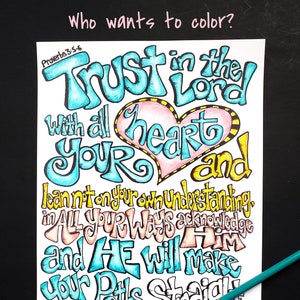 Who wants to color?
Proverbs 3:5-6
Trust in the
Lord
with all
your heart
and
lean not on your own understanding,
in ALL YOUR WAYS acknowledge
HIM
and HE will make
your Paths Straight